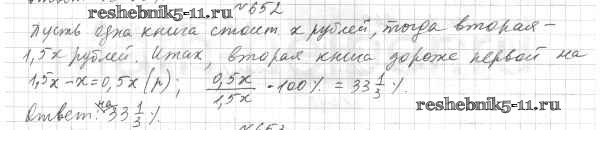 www.reshebnik5-11.ru
№652
Пусть одна книга стоит x рублей, тогда вторая –
1,5x рублей. Итак, вторая книга дороже первой на
1,5x – x = 0,5x (р); 0,5x/1,5x · 100% = 33 1/3 %.
reshebnik5-11.ru
Ответ: на 33 1/3 %.
№653